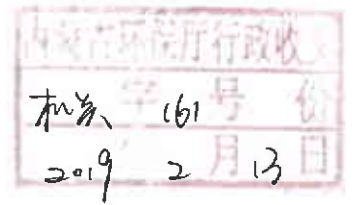 内蒙古环保厅行政收文
机关 字 161 号 份
2019 年 2 月 13 日